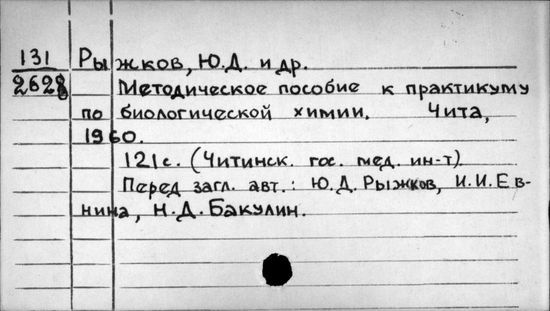 131 Рыжков, Ю.Д. и др.
2628 Методическое пособие к практикуму
по биологической химии. Чита,
1960.
121с. (Читинск. гос. мед. ин-т).
Перед загл. авт.: Ю.Д.Рыжков, И.И.Ев-
нина, Н.Д.Бакулин.